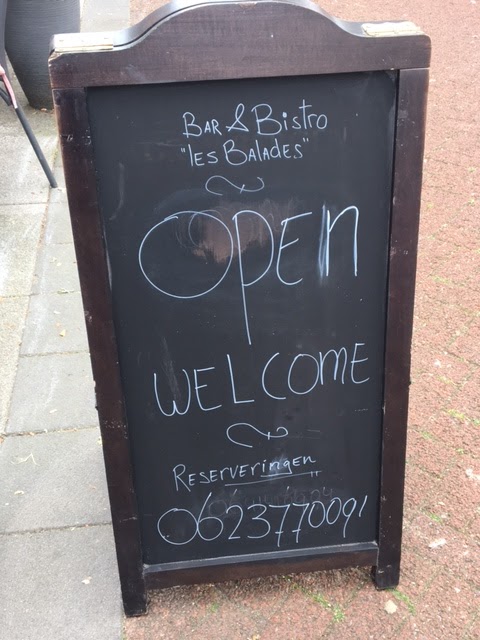 Bar & Bistro
"les Balades"
Open
WELCOME
Reserveringen
0623770091